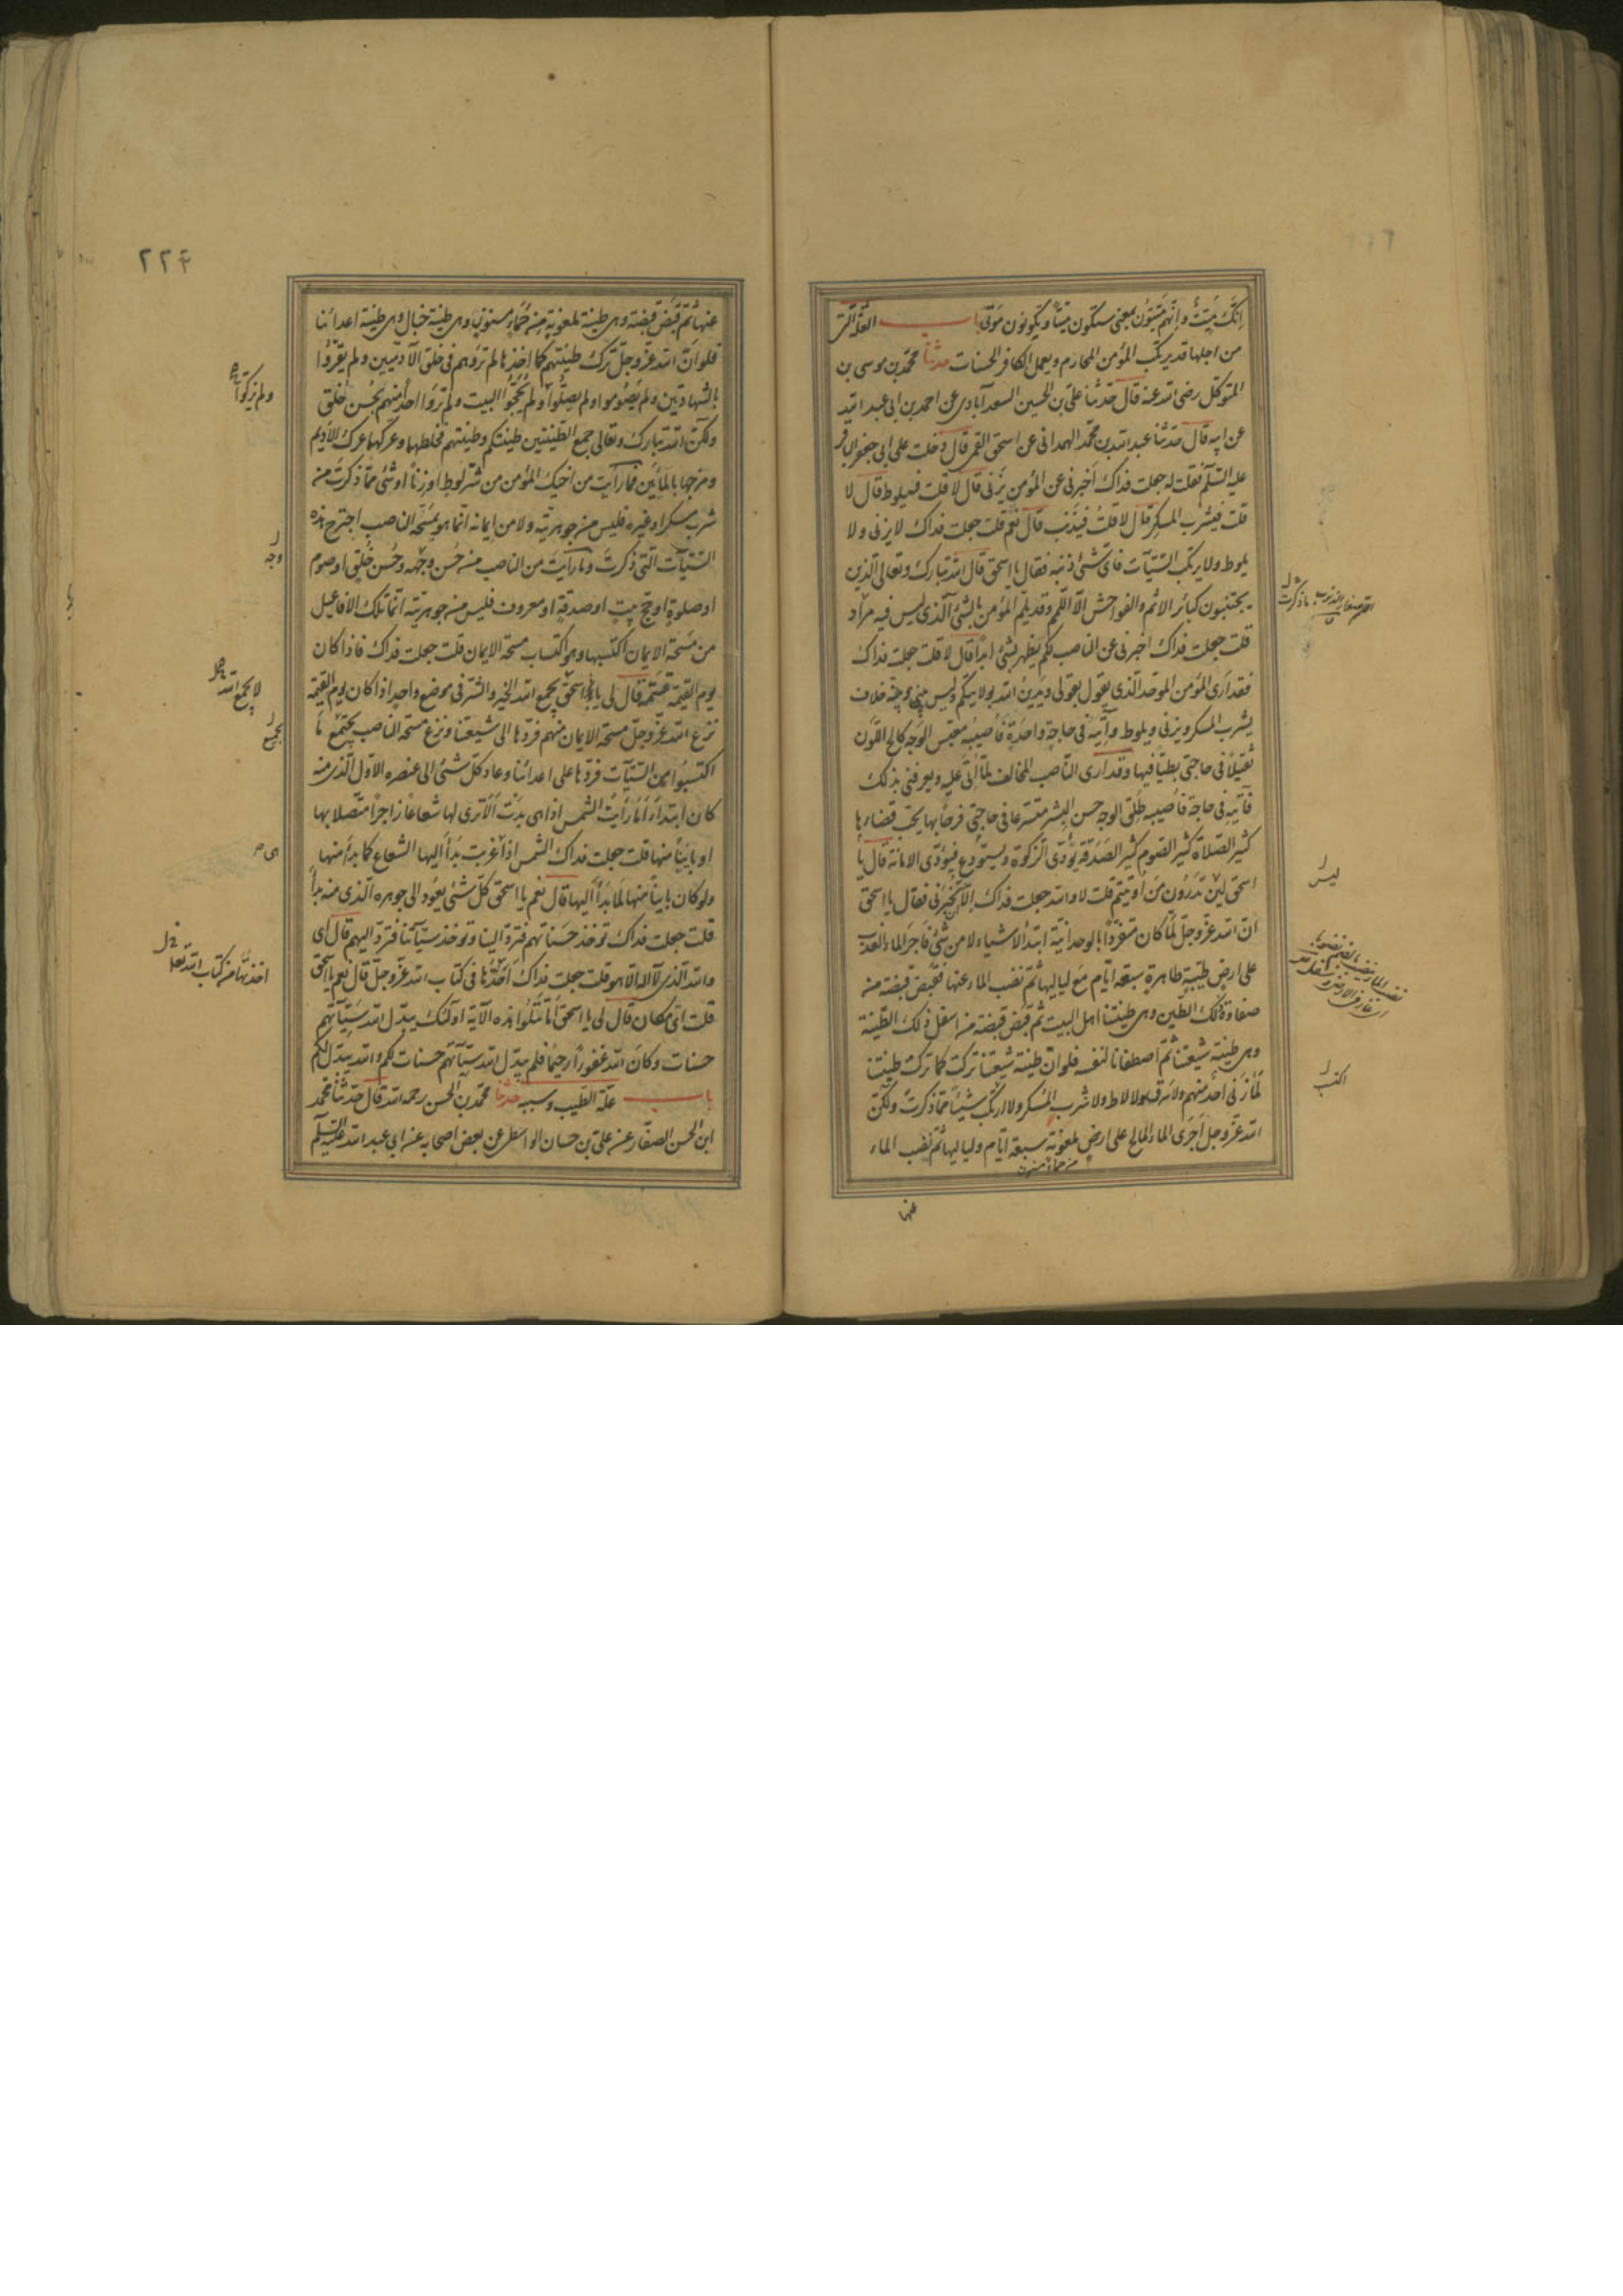 انّك ميّت وانّهم ميّتون بمعنى ستكون ميتا ويكونون موتى باب العلّة التى
من اجلها قد يرتكب المؤمن المحارم ويعمل الكافر الحسنات حدثنا محمّد بن موسى بن
المتوكل رضى الله عنه قال حدثنا على بن الحسين السعدآبادى عن احمد بن ابى عبد الله
عن ابيه قال حدثنا عبد الله بن محمّد الهمدانى عن اسحق القمى قال دخلت على ابى جعفر الباقر
عليه السّلم فقلت له جعلت فداك اخبرنى عن المؤمن يزنى قال لا قلت فيلوط قال لا
قلت فيشرب المسكر قال لا قلت فيذنب قال نعم قلت جعلت فداك لا يزنى ولا
يلوط ولا يرتكب السّيّآت فاىّ شئ ذنبه فقال يا اسحق قال الله تبارك وتعالى الذين
يجتنبون كبائر الاثم والفواحش الّا اللّمم وقد يلمّ المؤمن بالشئ الّذى ليس فيه مراد
قلت جعلت فداك اخبرنى عن الناصب لكم يظهر بشئ ابدا قال لا قلت جعلت فداك
فقد ارى المؤمن الموحّد الّذى يقول بقولى ويدين الله بولايتكم وليس بينى وبينه خلاف
يشرب المسكر ويزنى ويلوط وآتيه فى حاجة واحدة فاصيبه معبّس الوجه كالح اللّون
ثقيلا فى حاجتى بطيّا فيها وقد ارى النّاصب المخالف لما أنا عليه ويعرفنى بذلك
فآتيه فى حاجة فاصيبه طلق الوجه حسن البشر متسرّعا فى حاجتى فرحا بها يحبّ قضاءها
كثير الصّلاة كثير الصّوم كثير الصّدقة يؤدّى الزكوة ويستودع فيؤدّى الامانة قال يا
اسحق ليس تدرون من اين اوتيتم قلت لا والله جعلت فداك الا تخبرنى فقال يا اسحق
انّ الله عزّ وجلّ لمّا كان متفرّدا بالوحدانيّة ابتدأ الاشياء لا من شئ فاجرى الماء العذب
على ارض طيّبة طاهرة سبعة ايّام مع لياليها ثمّ نضب الماء عنها فقبض قبضة من
صفاوة ذلك الطّين وهى طينتنا اهل البيت ثمّ قبض قبضة من اسفل ذلك الطّينة
وهى طينة شيعتنا ثمّ اصطفانا لنفسه فلو انّ طينة شيعتنا تركت كما تركت طينتنا
لما زنى احد منهم ولا سرق ولا لاط ولا شرب المسكر ولا ارتكب شيئا ممّا ذكرت ولكنّ
الله عزّ وجل اجرى الماء المالح على ارض ملعونة سبعة ايّام ولياليها ثمّ نضب الماء
عنها
ليس
اكتب
٢٢٤
عنها ثمّ قبض قبضة وهى طينة ملعونة من حمأ مسنون وهى طينة خبال وهى طينة اعدائنا
فلو انّ الله عزّ وجلّ ترك طينتهم كما اخذها لم تروهم فى خلق الآدميّين ولم يقرّوا
بالشهادتين ولم يصوموا ولم يصلّوا ولم يحجّوا البيت ولم تروا احدا منهم بحسن خلق
ولكنّ الله تبارك وتعالى جمع الطّينتين طينتكم وطينتهم فخلطها وعركها عرك الاديم
ومزجها بالمائين فما رأيت من اخيك المؤمن من شر لوط او زنا او شئ ممّا ذكرت من
شرب مسكر او غيره فليس من جوهريّته ولا من ايمانه انّما هو بمسحة الناصب اجترح هذه
السّيّآت التّى ذكرت وما رأيت من الناصب من حسن وجهه وحسن خلق او صوم
او صلوة او حجّ بيت او صدقة او معروف فليس من جوهريّته انّما تلك الافاعيل
من مسحة الايمان اكتسبها وهو اكتساب مسحة الايمان قلت جعلت فداك فاذا كان
يوم القيمة فمه قال لى يا اسحق يجمع الله الخير والشّر فى موضع واحد اذا كان يوم القيمة
نزع الله عزّ وجلّ مسحة الايمان منهم فردّها الى شيعتنا ونزع مسحة الناصب بجميع ما
اكتسبوا من السّيّآت فردّها على اعدائنا وعاد كلّ شئ الى عنصره الاوّل الّذى منه
كان ابتدأ اما رأيت الشمس اذا هى بدت الا ترى لها شعاعا زاجرا متّصلا بها
او باينا منها قلت جعلت فداك الشمس اذا غربت بدأ اليها الشعاع كما بدأ منها
ولو كان باينا منها لما بدأ اليها قال نعم يا اسحق كلّ شئ يعود الى جوهره الّذى منه بدأ
قلت جعلت فداك تؤخذ حسناتهم فتردّ الينا وتؤخذ سيّآتنا فتردّ اليهم قال اى
والله الّذى لا اله الّا هو قلت جعلت فداك اجدها فى كتاب الله عزّ وجلّ قال نعم يا اسحق
قلت اىّ مكان قال لى يا اسحق اما تتلوا هذه الآية اولئك يبدّل الله سيّآتهم
حسنات وكان الله غفورا رحيما فلم يبدّل الله سيّآتهم حسنات الّا لكم والله يبدّل لكم
باب علّة الطّيب وسببه حدثنا محمّد بن الحسن رحمه الله قال حدّثنا محمّد
ابن الحسن الصفّار عن علىّ بن حسان الواسطى عن بعض اصحابه عن ابى عبد الله عليه السّلم
ولم يزكّوا
وجه
لا يجمع الله
بجميع
هى
اخذتها من كتاب الله تعالى